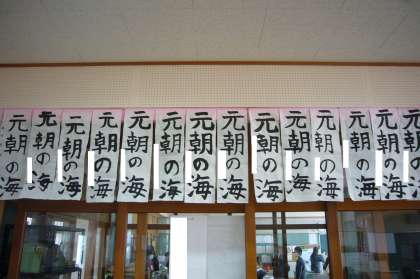 元朝の海
元朝の海
元朝の海
元朝の海
元朝の海
元朝の海
元朝の海
元朝の海
元朝の海
元朝の海
元朝の海
元朝の海
元朝の海
元朝の海